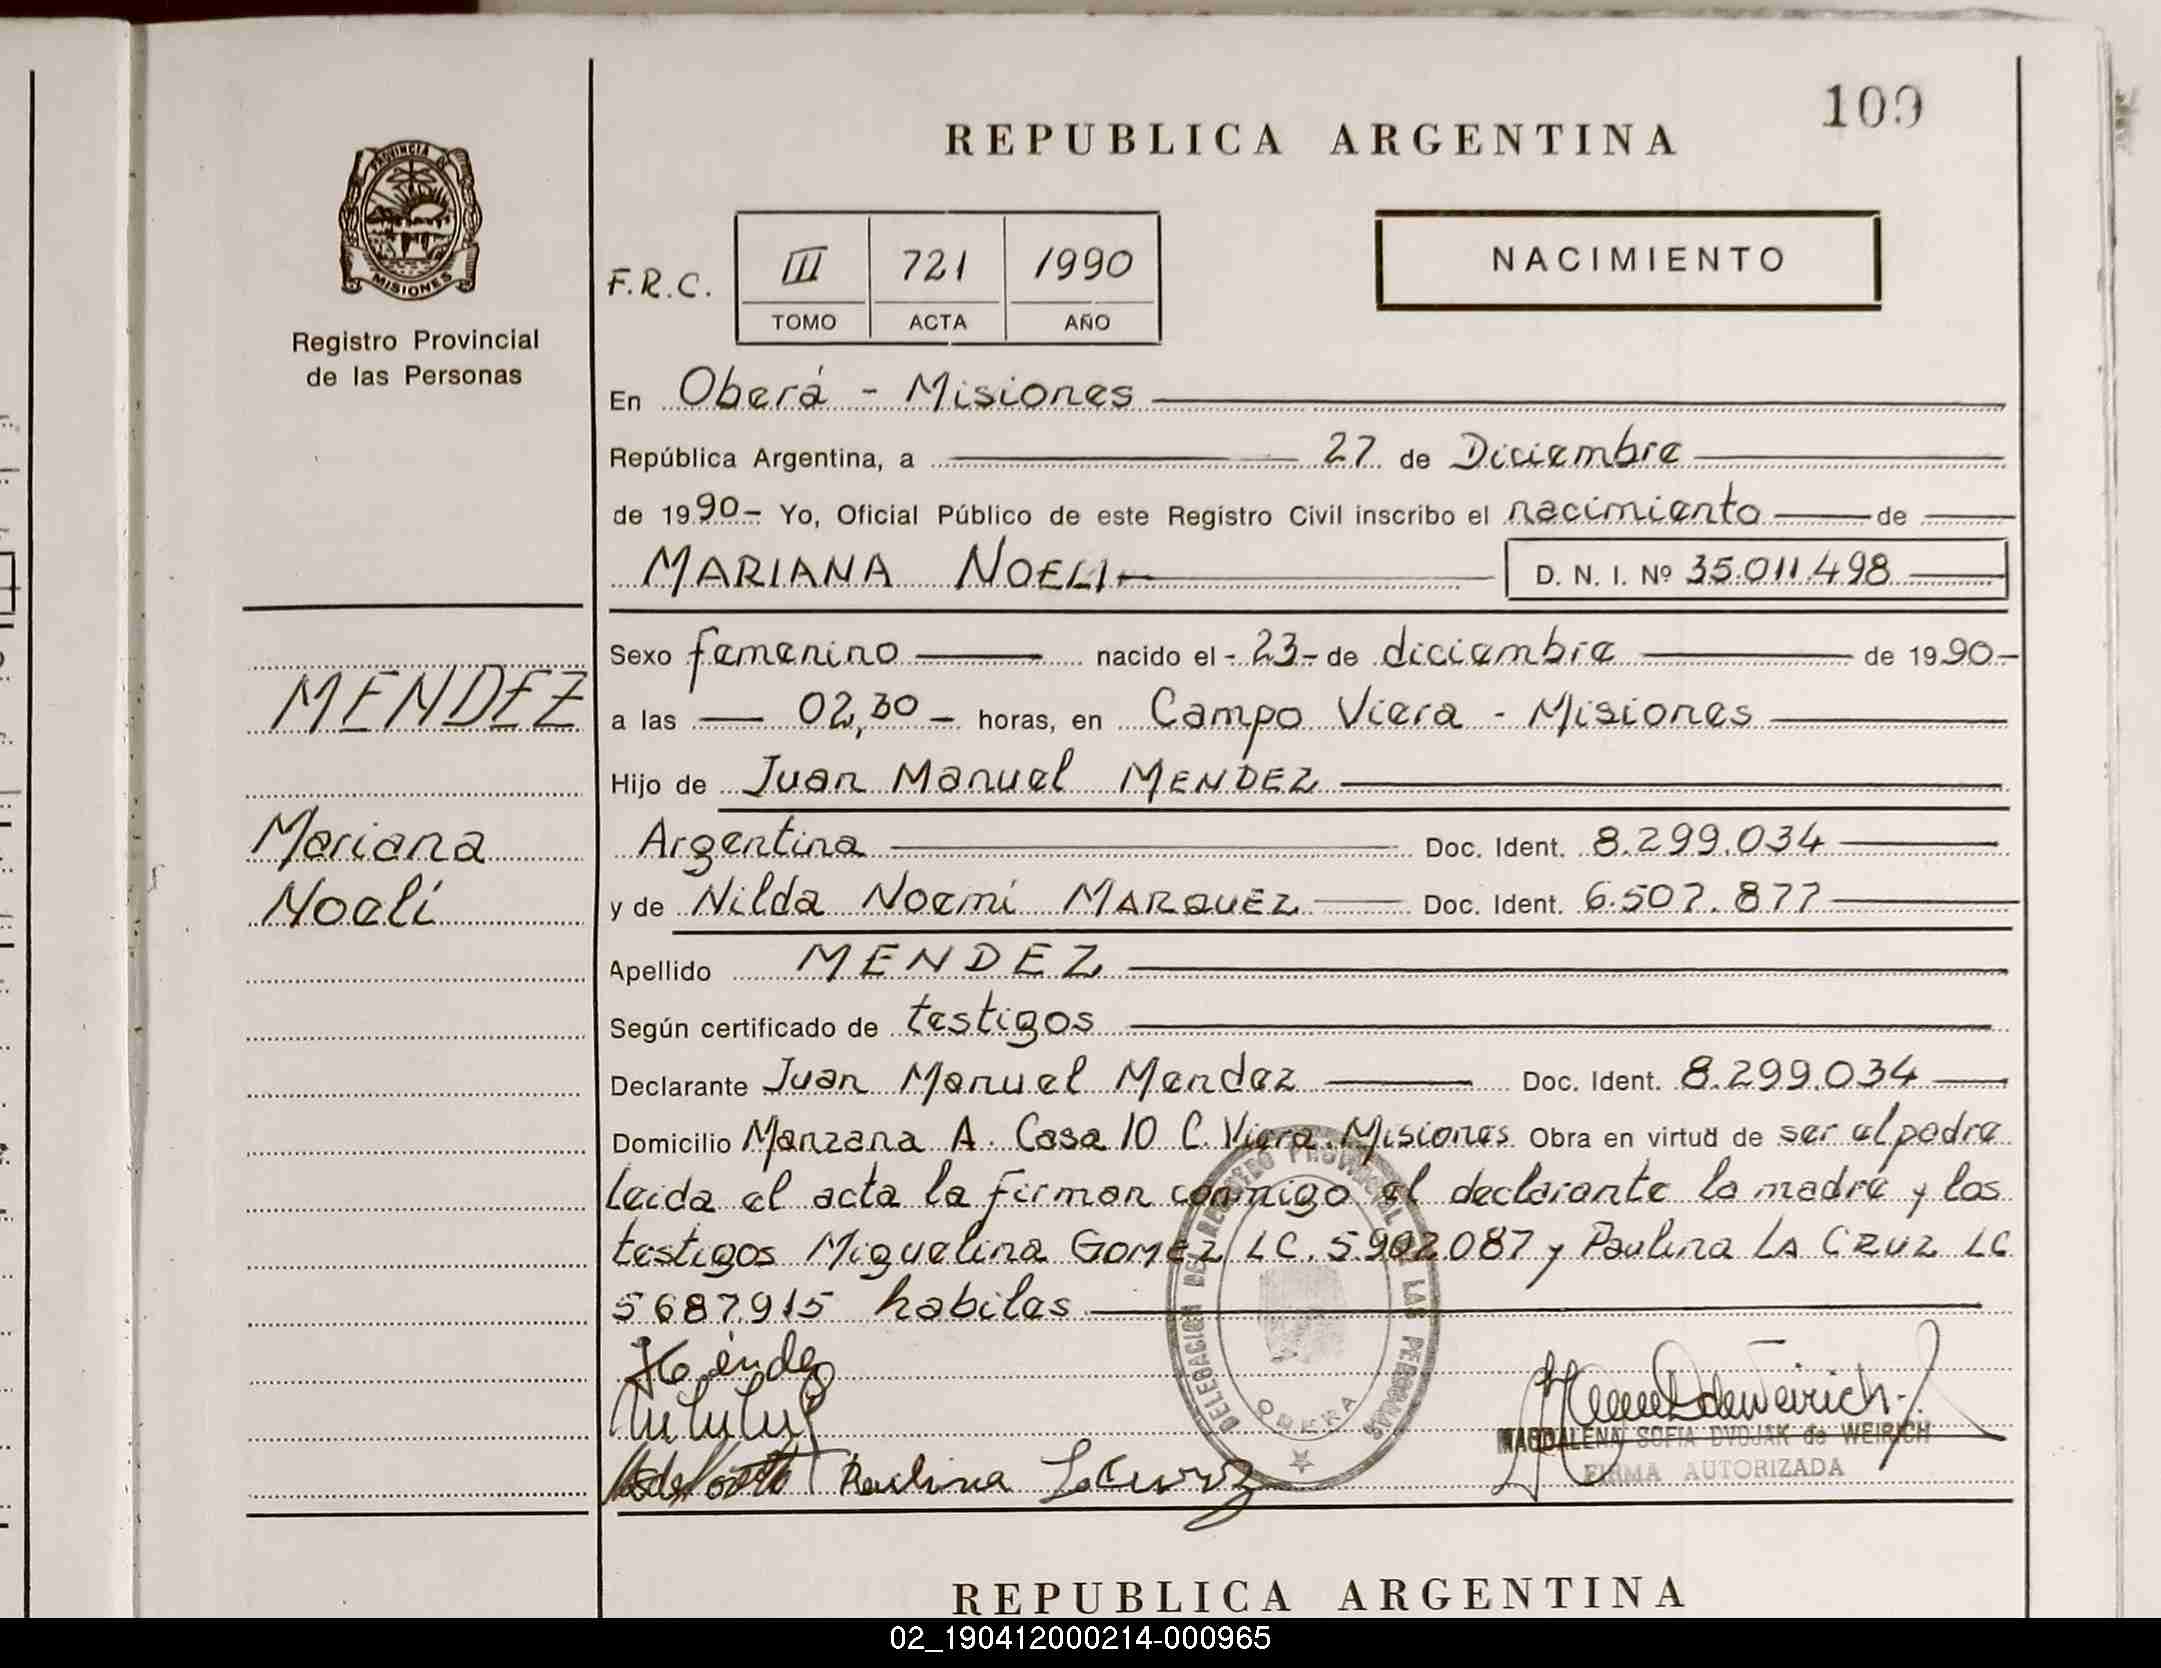 109
REPUBLICA ARGENTINA
PROVINCIA DE
MISIONES
Registro Provincial
de las Personas
F.R.C.
III 721 1990
TOMO ACTA AÑO
NACIMIENTO
En Oberá - Misiones
República Argentina, a 27 de Diciembre
de 1990- Yo, Oficial Público de este Registro Civil inscribo el nacimiento de
MARIANA NOELI D. N. I. Nº 35.011.498
Sexo femenino nacido el - 23 - de diciembre de 1990-
MENDEZ
a las 02,30 - horas, en Campo Viera - Misiones
Hijo de Juan Manuel MENDEZ
Mariana
Argentina Doc. Ident. 8.299.034
Noelí
y de Nilda Noemí MARQUEZ Doc. Ident. 6.507.877
Apellido MENDEZ
Según certificado de testigos
Declarante Juan Manuel Mendez Doc. Ident. 8.299.034
Domicilio Manzana A. Casa 10 C. Viera. Misiones Obra en virtud de ser el padre
Leida el acta la firman conmigo el declarante la madre y los
testigos Miguelina GOMEZ LC. 5.902.087 y Paulina LA CRUZ LC
5687.915 habiles
DELEGACION DEL REGISTRO PROVINCIAL DE LAS PERSONAS
OBERA
Paulina LaCruz
MAGDALENA SOFIA DVOJAK de WEIRICH
FIRMA AUTORIZADA
REPUBLICA ARGENTINA
02_190412000214-000965